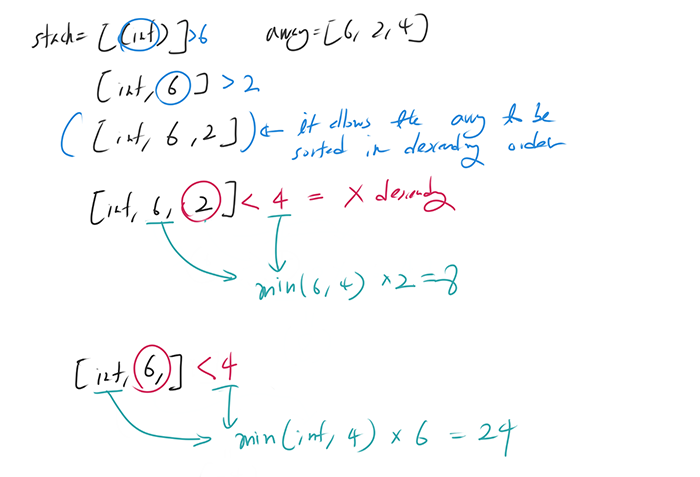 stack = [(int)] > 6 array = [6, 2, 4]
[int, 6] > 2
([int, 6, 2]) ← it allows the array to be
sorted in descending order
[int, 6, 2] < 4 = X descendy
min(6, 4) × 2 = 8
[int, 6,] < 4
min(int, 4) × 6 = 24